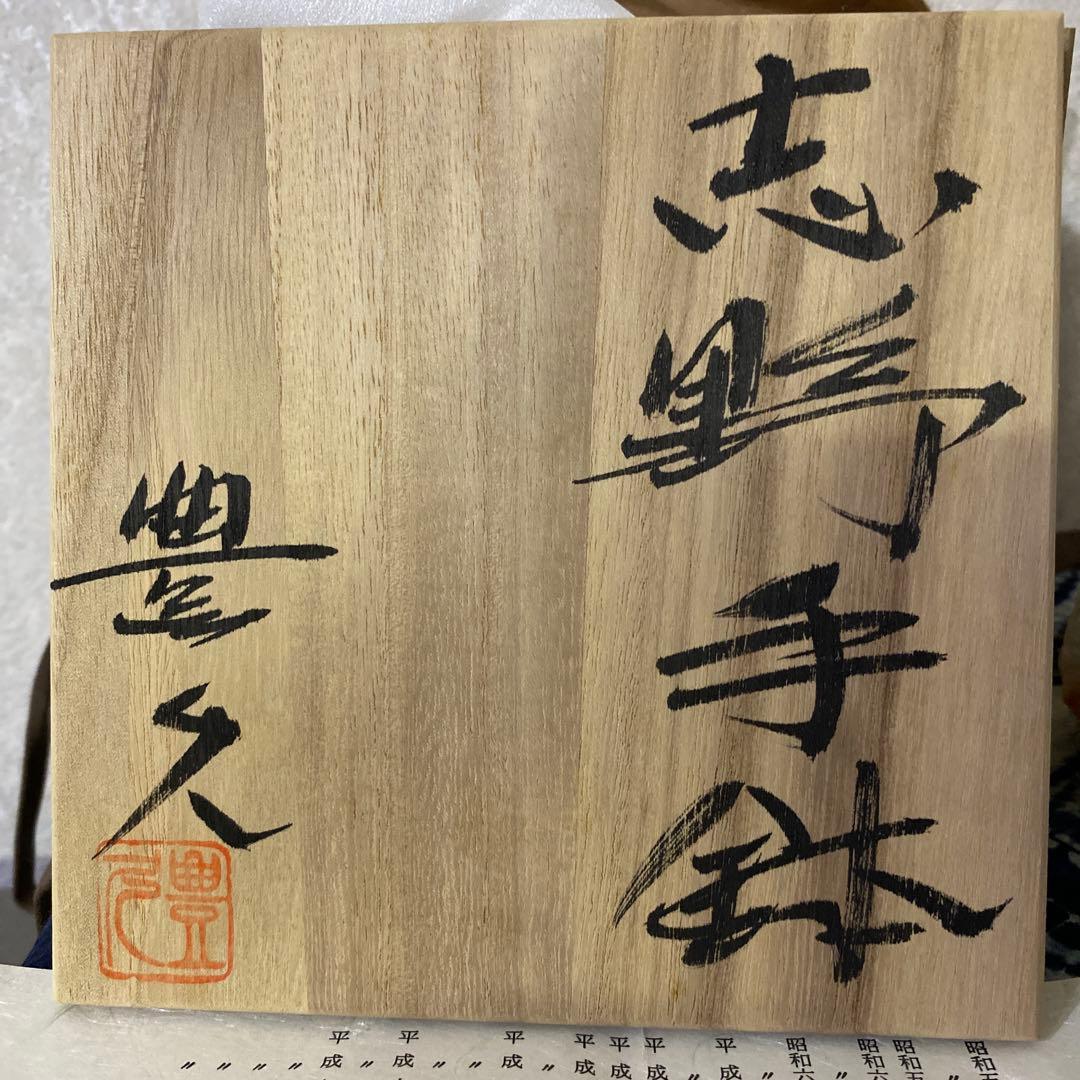 志野手鉢
豊久
豊久
昭和五
〃
昭和五
昭和六
〃
昭和六
〃
平成
〃
平成
平成
平成
〃
平成
〃
〃
平成
〃
平成
〃
〃
〃